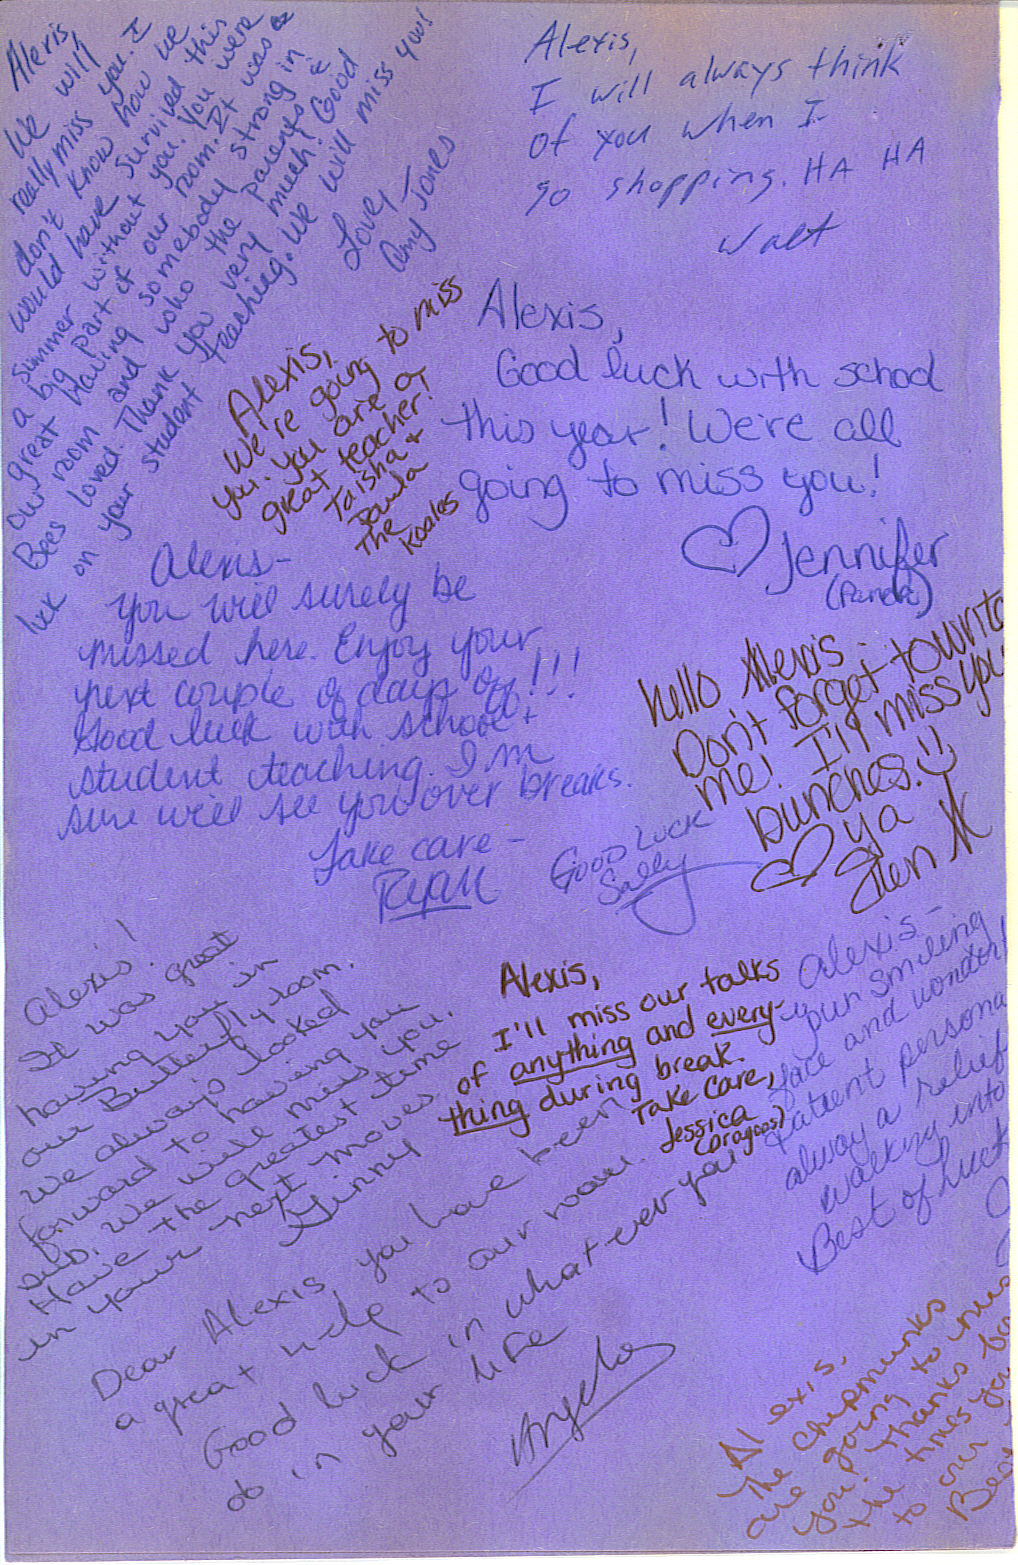 Alexis,
We will
really miss you. I
don't know how we
would have survived this
summer without you. You were
a big part of our room. It was
great having somebody strong in
our room and who the parents &
Bees loved. Thank you very much! Good
luck on your student teaching. We will miss you!
Love,
Amy Jones
Alexis,
I will always think
of you when I
go shopping. HA HA
Walt
Alexis,
We're going to miss
you. You are a
great teacher!
Taisha +
Paula
The
Koalas
Alexis,
Good luck with school
this year! We're all
going to miss you!
Jennifer
(Panda)
Alexis-
You will surely be
missed here. Enjoy your
next couple of days off!!!
Good luck with school +
student teaching. I'm
sure will see you over breaks.
Take care -
Ryan
Hello Alexis.
Don't forget to write
me! I'll miss you
bunches.
ya
Ellen K
Good Luck
Sally
Alexis!
It was great
having you in
our Butterfly room.
We always looked
forward to having you
sub. We will miss you.
Have the greatest time
in your next moves.
Ginny
Alexis,
I'll miss our talks
of anything and every-
thing during break.
Take Care,
Jessica
(Dragons)
Alexis-
your smiling
face and wonderful
patient persona
always a relief
walking into
Best of luck
Dear Alexis you have been
a great help to our room.
Good luck in what ever you
do in your life
Angela
Alexis,
The Chipmunks
are going to miss
you. Thanks
the times you
to our